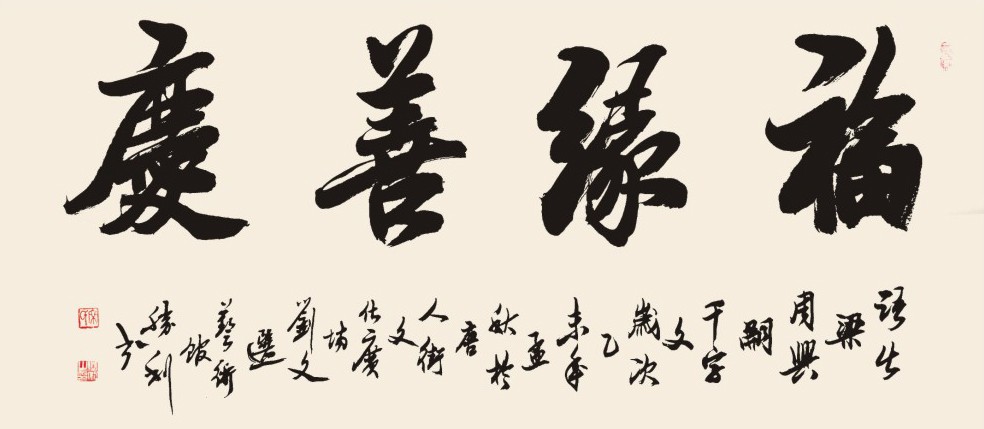 福緣善慶
語出
梁
周興
嗣
千字
文
歲次
乙
未年
孟
秋於
唐
人街
文
化廣
場
劉文
選
藝術
館
勝利
书